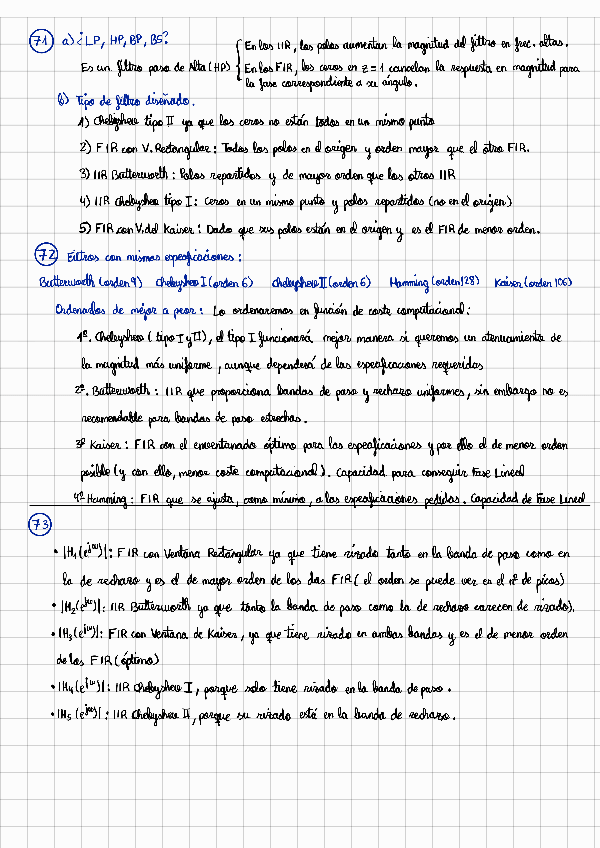 71 a) ¿LP, HP, BP, BS?
Es un filtro paso de Alta (HP) { En los IIR, los polos aumentan la magnitud del filtro en frec. altas.
En los FIR, los ceros en z = 1 cancelan la respuesta en magnitud para
la fase correspondiente a su ángulo.
b) Tipo de filtro diseñado.
1) Chebyshev tipo II ya que los ceros no están todos en un mismo punto
2) FIR con V. Rectangular: Todos los polos en el origen y orden mayor que el otro FIR.
3) IIR Butterworth: Polos repartidos y de mayor orden que los otros IIR
4) IIR Chebyshev tipo I: Ceros en un mismo punto y polos repartidos (no en el origen)
5) FIR con V. del Kaiser: Dado que sus polos están en el origen y es el FIR de menor orden.
72 Filtros con mismas especificaciones:
Butterworth (orden 9) Chebyshev I (orden 6) Chebyshev II (orden 6) Hamming (orden 128) Kaiser (orden 106)
Ordenados de mejor a peor: Lo ordenaremos en función de coste computacional:
1º. Chebyshev (tipo I y II), el tipo I funcionará mejor manera si queremos un atenuamiento de
la magnitud más uniforme, aunque dependerá de las especificaciones requeridas
2º. Butterworth: IIR que proporciona bandas de paso y rechazo uniformes, sin embargo no es
recomendable para bandas de paso estrechas.
3º Kaiser: FIR con el enventanado óptimo para las especificaciones y por ello el de menor orden
posible (y con ello, menor coste computacional). Capacidad para conseguir Fase Lineal
4º Hamming: FIR que se ajusta, como mínimo, a las especificaciones pedidas. Capacidad de Fase Lineal
73
• |H₁(e^jω)|: FIR con Ventana Rectangular ya que tiene rizado tanto en la banda de paso como en
la de rechazo y es el de mayor orden de los dos FIR (el orden se puede ver en el nº de picos)
• |H₂(e^jω)|: IIR Butterworth ya que tanto la banda de paso como la de rechazo carecen de rizado).
• |H₃(e^jω)|: FIR con Ventana de Kaiser, ya que tiene rizado en ambas bandas y es el de menor orden
de los FIR (óptimo)
• |H₄(e^jω)|: IIR Chebyshev I, porque solo tiene rizado en la banda de paso.
• |H₅(e^jω)|: IIR Chebyshev II, porque su rizado está en la banda de rechazo.